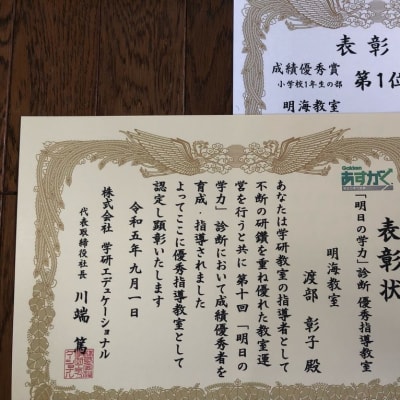 表彰
成績優秀賞
小学校1年生の部
第1位
明海教室
Gakken
あすがく
表彰状
「明日の学力」診断 優秀指導教室
明海教室
渡部 彰子 殿
あなたは学研教室の指導者として
不断の研鑽を重ね優れた教室運
営を行うと共に 第十回 「明日の
学力」診断において成績優秀者を
育成・指導されました
よってここに優秀指導教室として
認定し顕彰いたします
令和五年九月一日
株式会社 学研エデュケーショナル
代表取締役社長 川端 篤